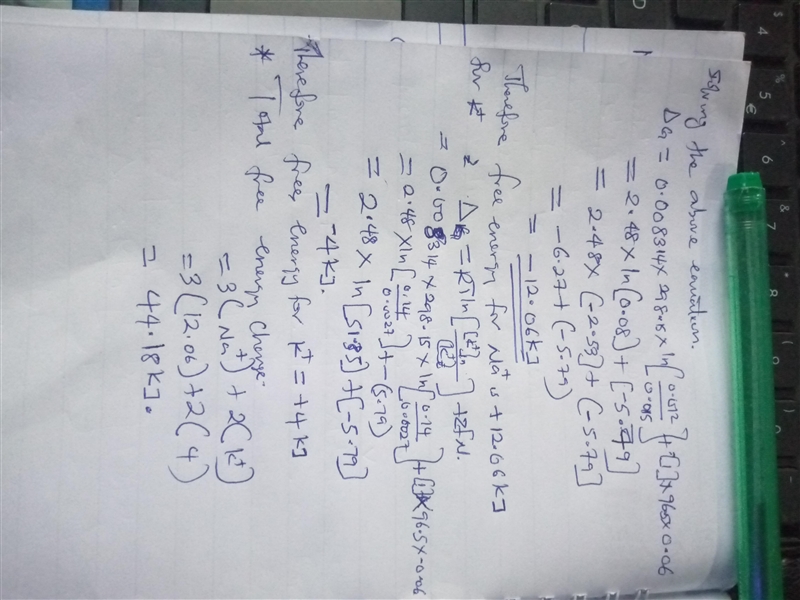 Solving the above equation.
ΔG = 0.008314 × 298.15 × ln[0.012/0.015] + [1] × 96.5 × 0.06
= 2.48 × ln(0.08) + [-5.79]
= 2.48 × (-2.53] + (-5.79]
= -6.27 + (-5.79)
= -12.06KJ
Therefore free energy for Na⁺ is +12.06KJ
for K⁺
ΔG = RTln[[K⁺]in/[K⁺]] + ZFN.
= 0.008314 × 298.15 × ln[0.14/0.0027] + [1] × 96.5 × -0.06
= 2.48 × ln[0.14/0.0027] + -(5.79)
= 2.48 × ln[51.85] + [-5.79]
= -4KJ.
Therefore free energy for K⁺ = +4KJ
* Total free energy change.
= 3(Na⁺) + 2(K⁺)
= 3(12.06) + 2(4)
= 44.18KJ.